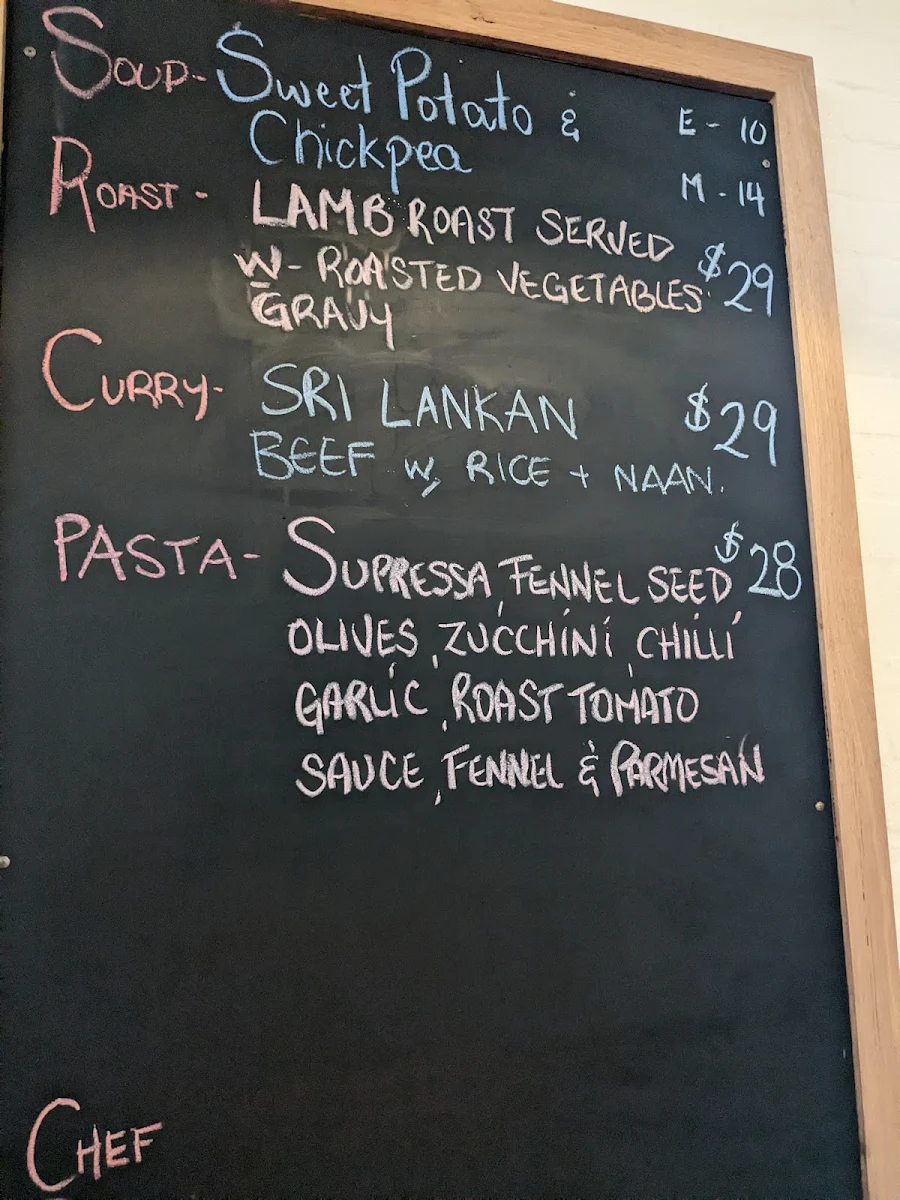 SOUP- Sweet Potato & E - 10
Chickpea M - 14
ROAST - LAMB ROAST SERVED
W- ROASTED VEGETABLES $29
GRAVY
CURRY- SRI LANKAN $29
BEEF w, RICE + NAAN.
PASTA- SUPRESSA, FENNEL SEED $28
OLIVES, ZUCCHINI, CHILLI
GARLIC, ROAST TOMATO
SAUCE, FENNEL & PARMESAN
CHEF